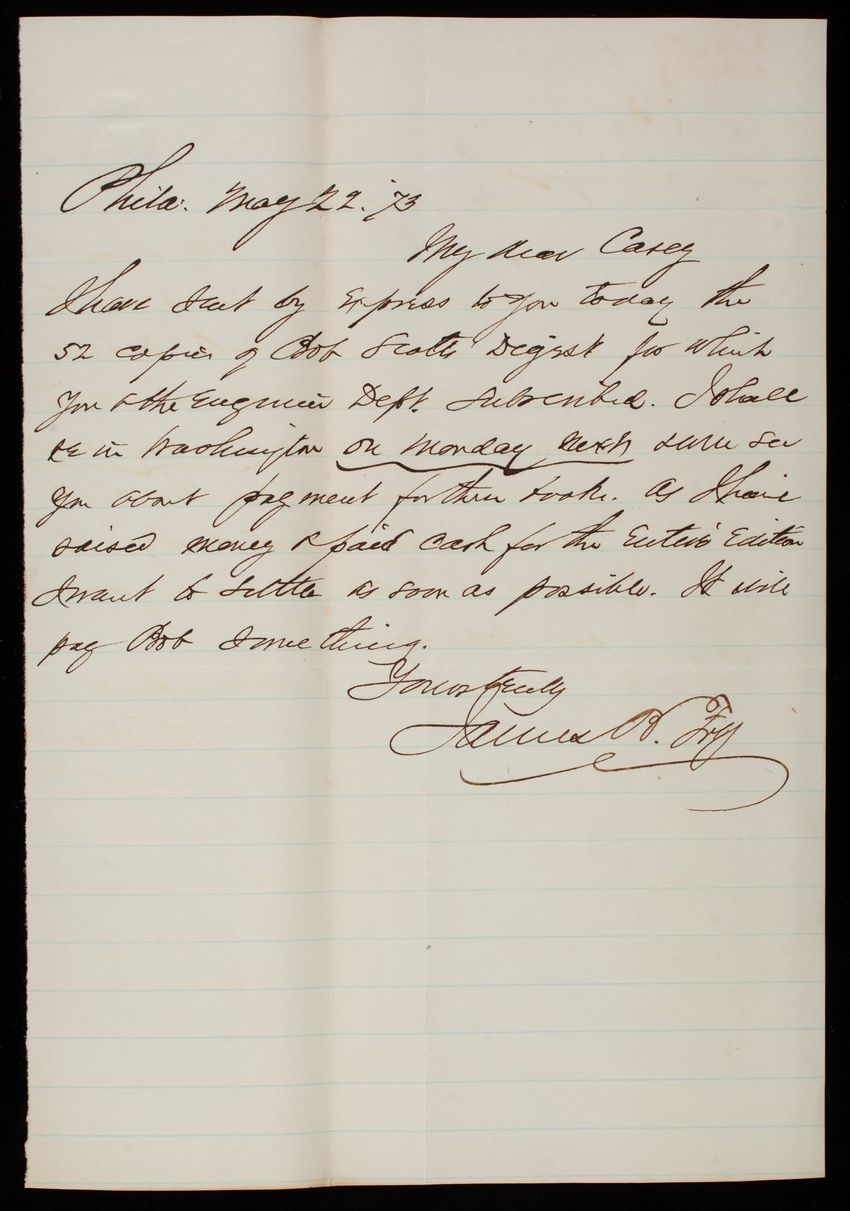 Phila. May 22. 73
My dear Casey
I have sent by Express to you today the
52 copies of Bob Scotts Digest for which
you & the Engineer Dept. subscribed. I shall
be in Washington on Monday next & will see
you about payment for the book. As I have
raised money & paid cash for the Entire Edition
I want to settle as soon as possible. It will
pay Bob something.
Yours truly
James B. Fry